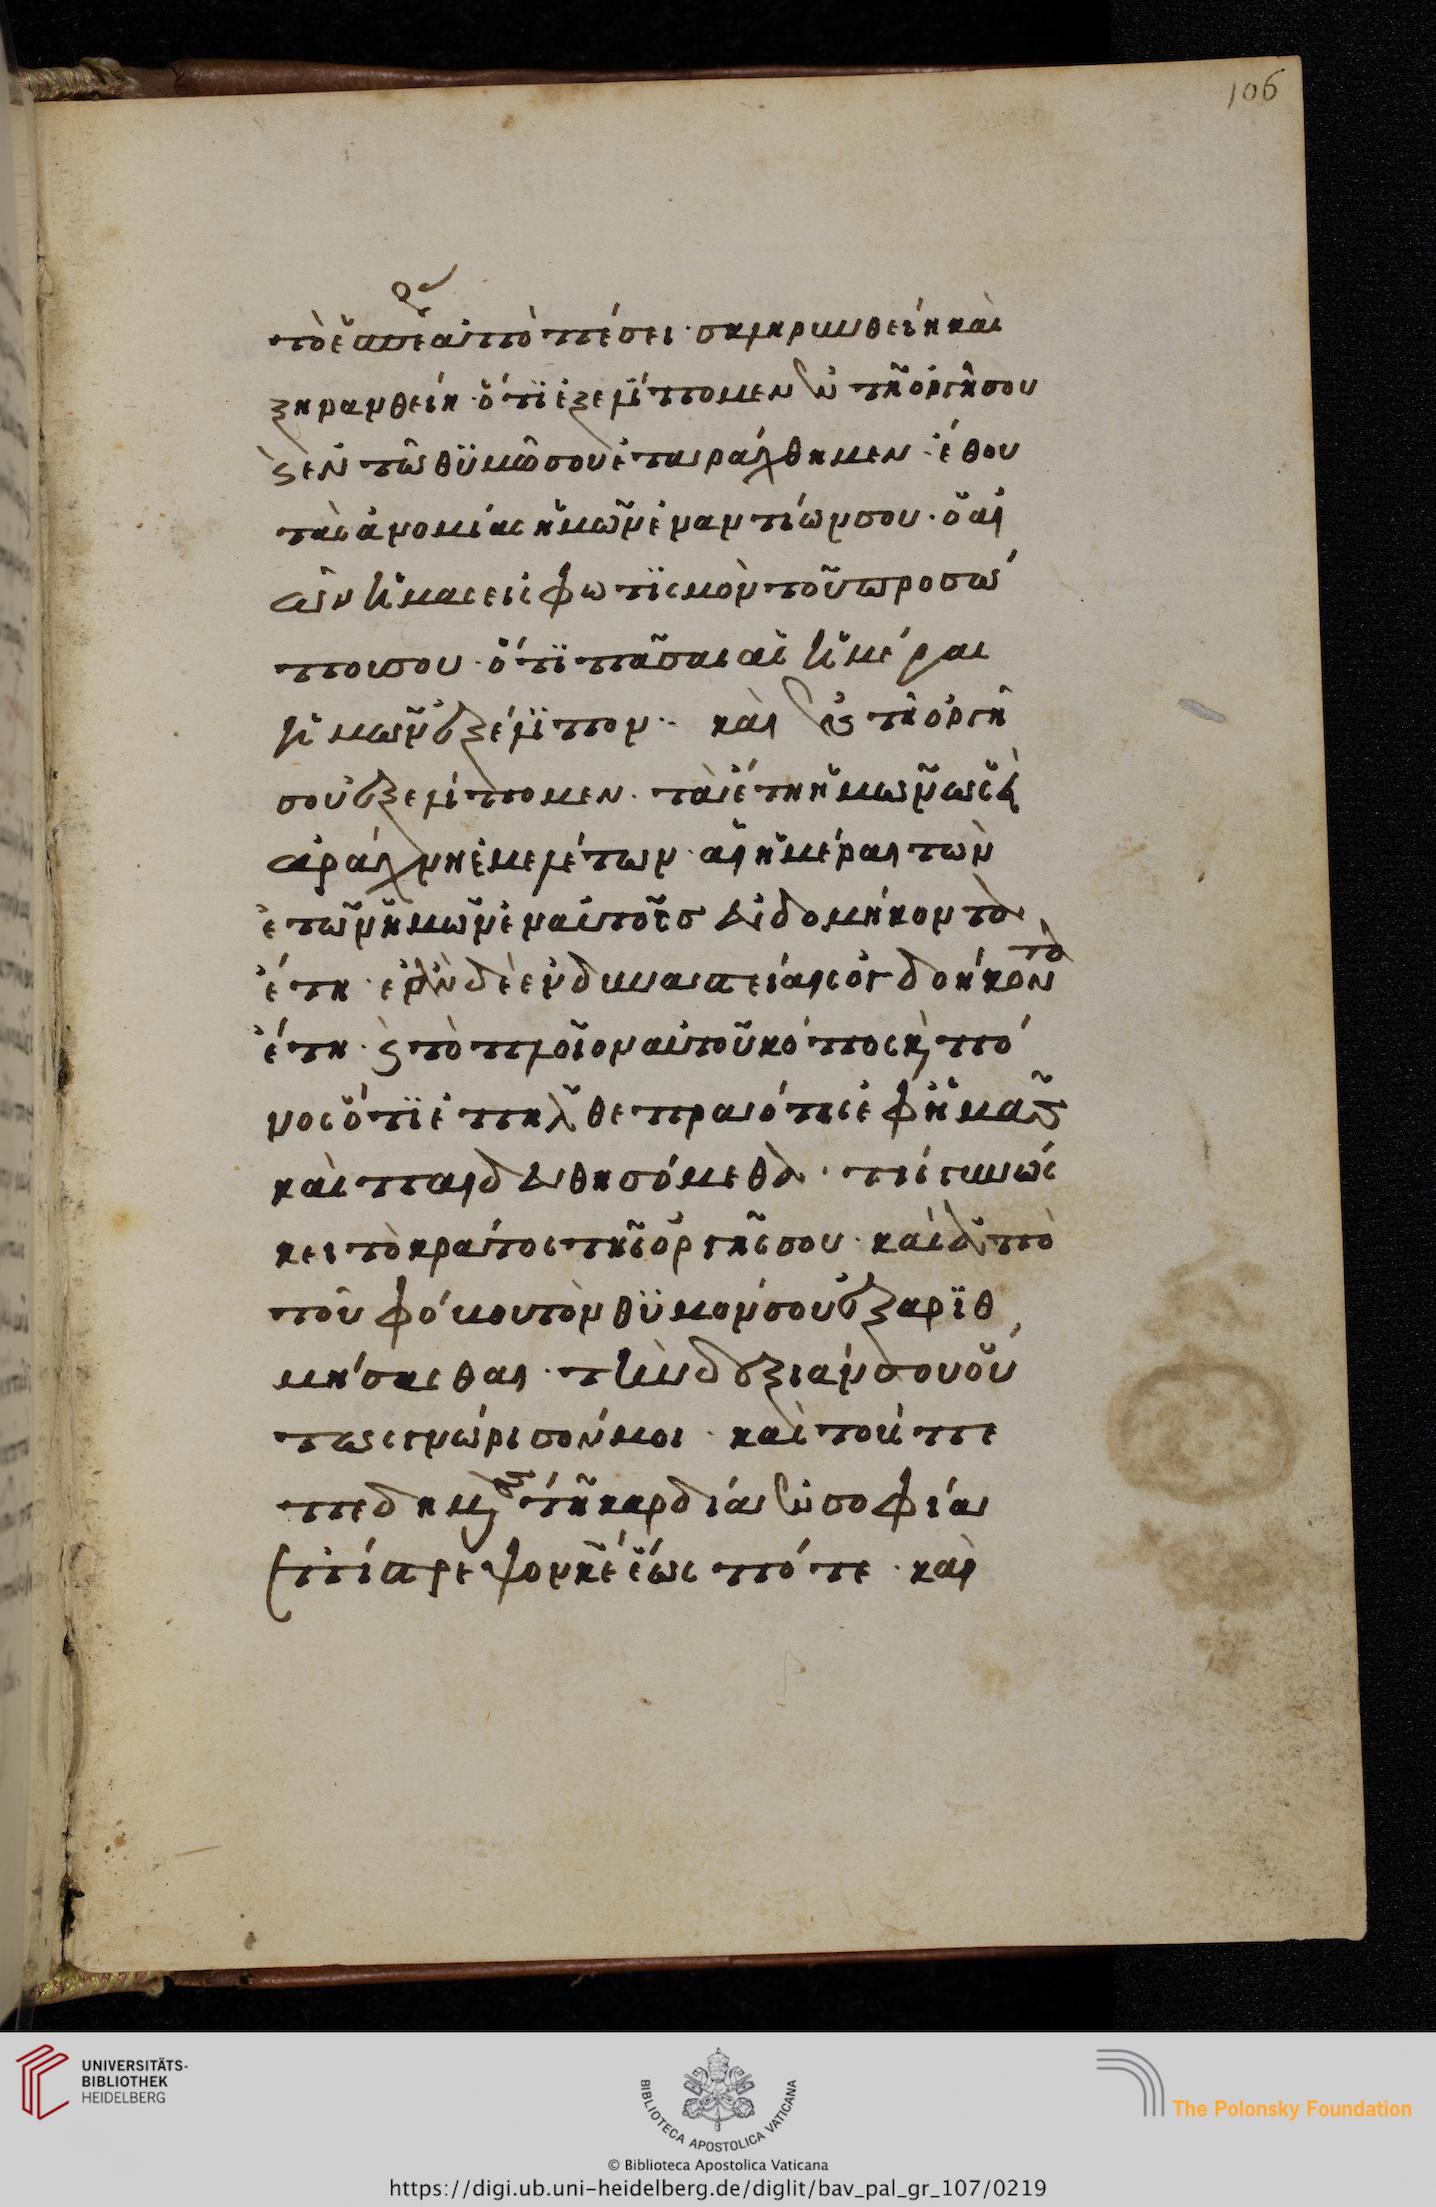 106
τὸ ἑσπέρας ἀποπέσει· σκληρυνθείη καὶ
ξηρανθείη· ὅτϊ ἐξελΐπομεν ἐν τῆ ὀργῆ σου
ϗ ἐν τῶ θϋμῶ σου ἐταράχθημεν· ἔθου
τὰς ἀνομίας ἡμῶν ἐναντίον σου· ὁ αἰ
ὼν ἡμῶν εἰς φωτϊσμὸν τοῦ προσώ
που σου· ὅτϊ πᾶσαι αἱ ἡμέραι
ἡμῶν ἐξέλϊπον· καὶ ἐν τῆ ὀργῆ
σου ἐξελίπομεν· τὰ ἔτη ἡμῶν ὡσεὶ
ἀράχνη ἐμελέτων· αἱ ἡμέραι τῶν
ἐτῶν ἡμῶν ἐν αὐτοῖς ἑβδομήκοντα
ἔτη· ἐὰν δὲ ἐν δυναστείαις ὀγδοήκοντα
ἔτη· ϗ τὸ πλεῖον αὐτοῦ κόπος ϗ πό
νος ὅτϊ ἐπῆλθε πραότης ἐφ ἡμᾶς
καὶ παιδευθησόμεθα· τίς γινώσ
κει τὸ κράτος τῆς ὀργῆς σου· καὶ ἀπὸ
τοῦ φόβου τὸν θϋμόν σου ἐξαρϊθ
μήσασθαι· τὴν δεξιάν σου οὕ
τως γνώρισόν μοι· καὶ τοὺς πε
πεδημένους τῆ καρδία ἐν σοφία
ἐπίστρεψον κε ἕως πότε· καὶ
UNIVERSITÄTS-
BIBLIOTHEK
HEIDELBERG
BIBLIOTECA APOSTOLICA VATICANA
© Biblioteca Apostolica Vaticana
The Polonsky Foundation
https://digi.ub.uni-heidelberg.de/diglit/bav_pal_gr_107/0219